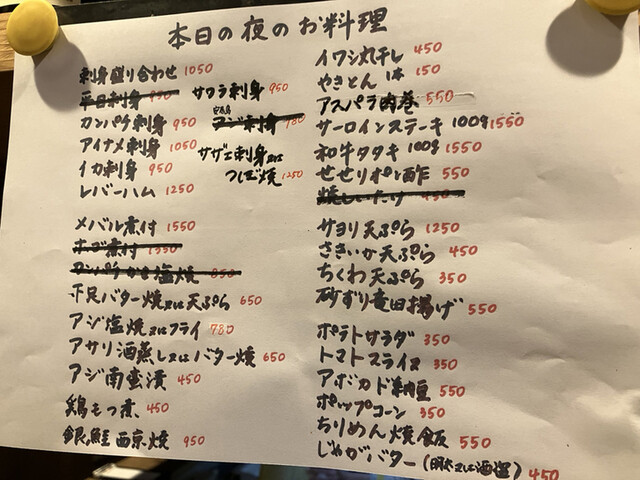 本日の夜のお料理
刺身盛り合わせ 1050
平目刺身 850
カンパチ刺身 950
アイナメ刺身 1050
イカ刺身 950
レバーハム 1250
サワラ刺身 950
アジ刺身 780
サザエ刺身又は
つぼ焼 1250
メバル煮付 1550
ホゴ煮付 1350
カンパチかま塩焼 850
下足バター焼又は天ぷら 650
アジ塩焼又はフライ 780
アサリ酒蒸し又はバター焼 650
アジ南蛮漬 450
鶏もつ煮 450
銀鮭西京焼 950
イワシ丸干し 450
やきとん 1本 150
アスパラ肉巻 550
サーロインステーキ 100g 1550
和牛タタキ 100g 1550
せせりポン酢 550
焼しいたけ 450
サヨリ天ぷら 1250
さきいか天ぷら 450
ちくわ天ぷら 350
砂ずり竜田揚げ 550
ポテトサラダ 350
トマトスライス 350
アボカド納豆 550
ポップコーン 350
ちりめん焼飯 550
じゃがバター(明太又は酒盗) 450